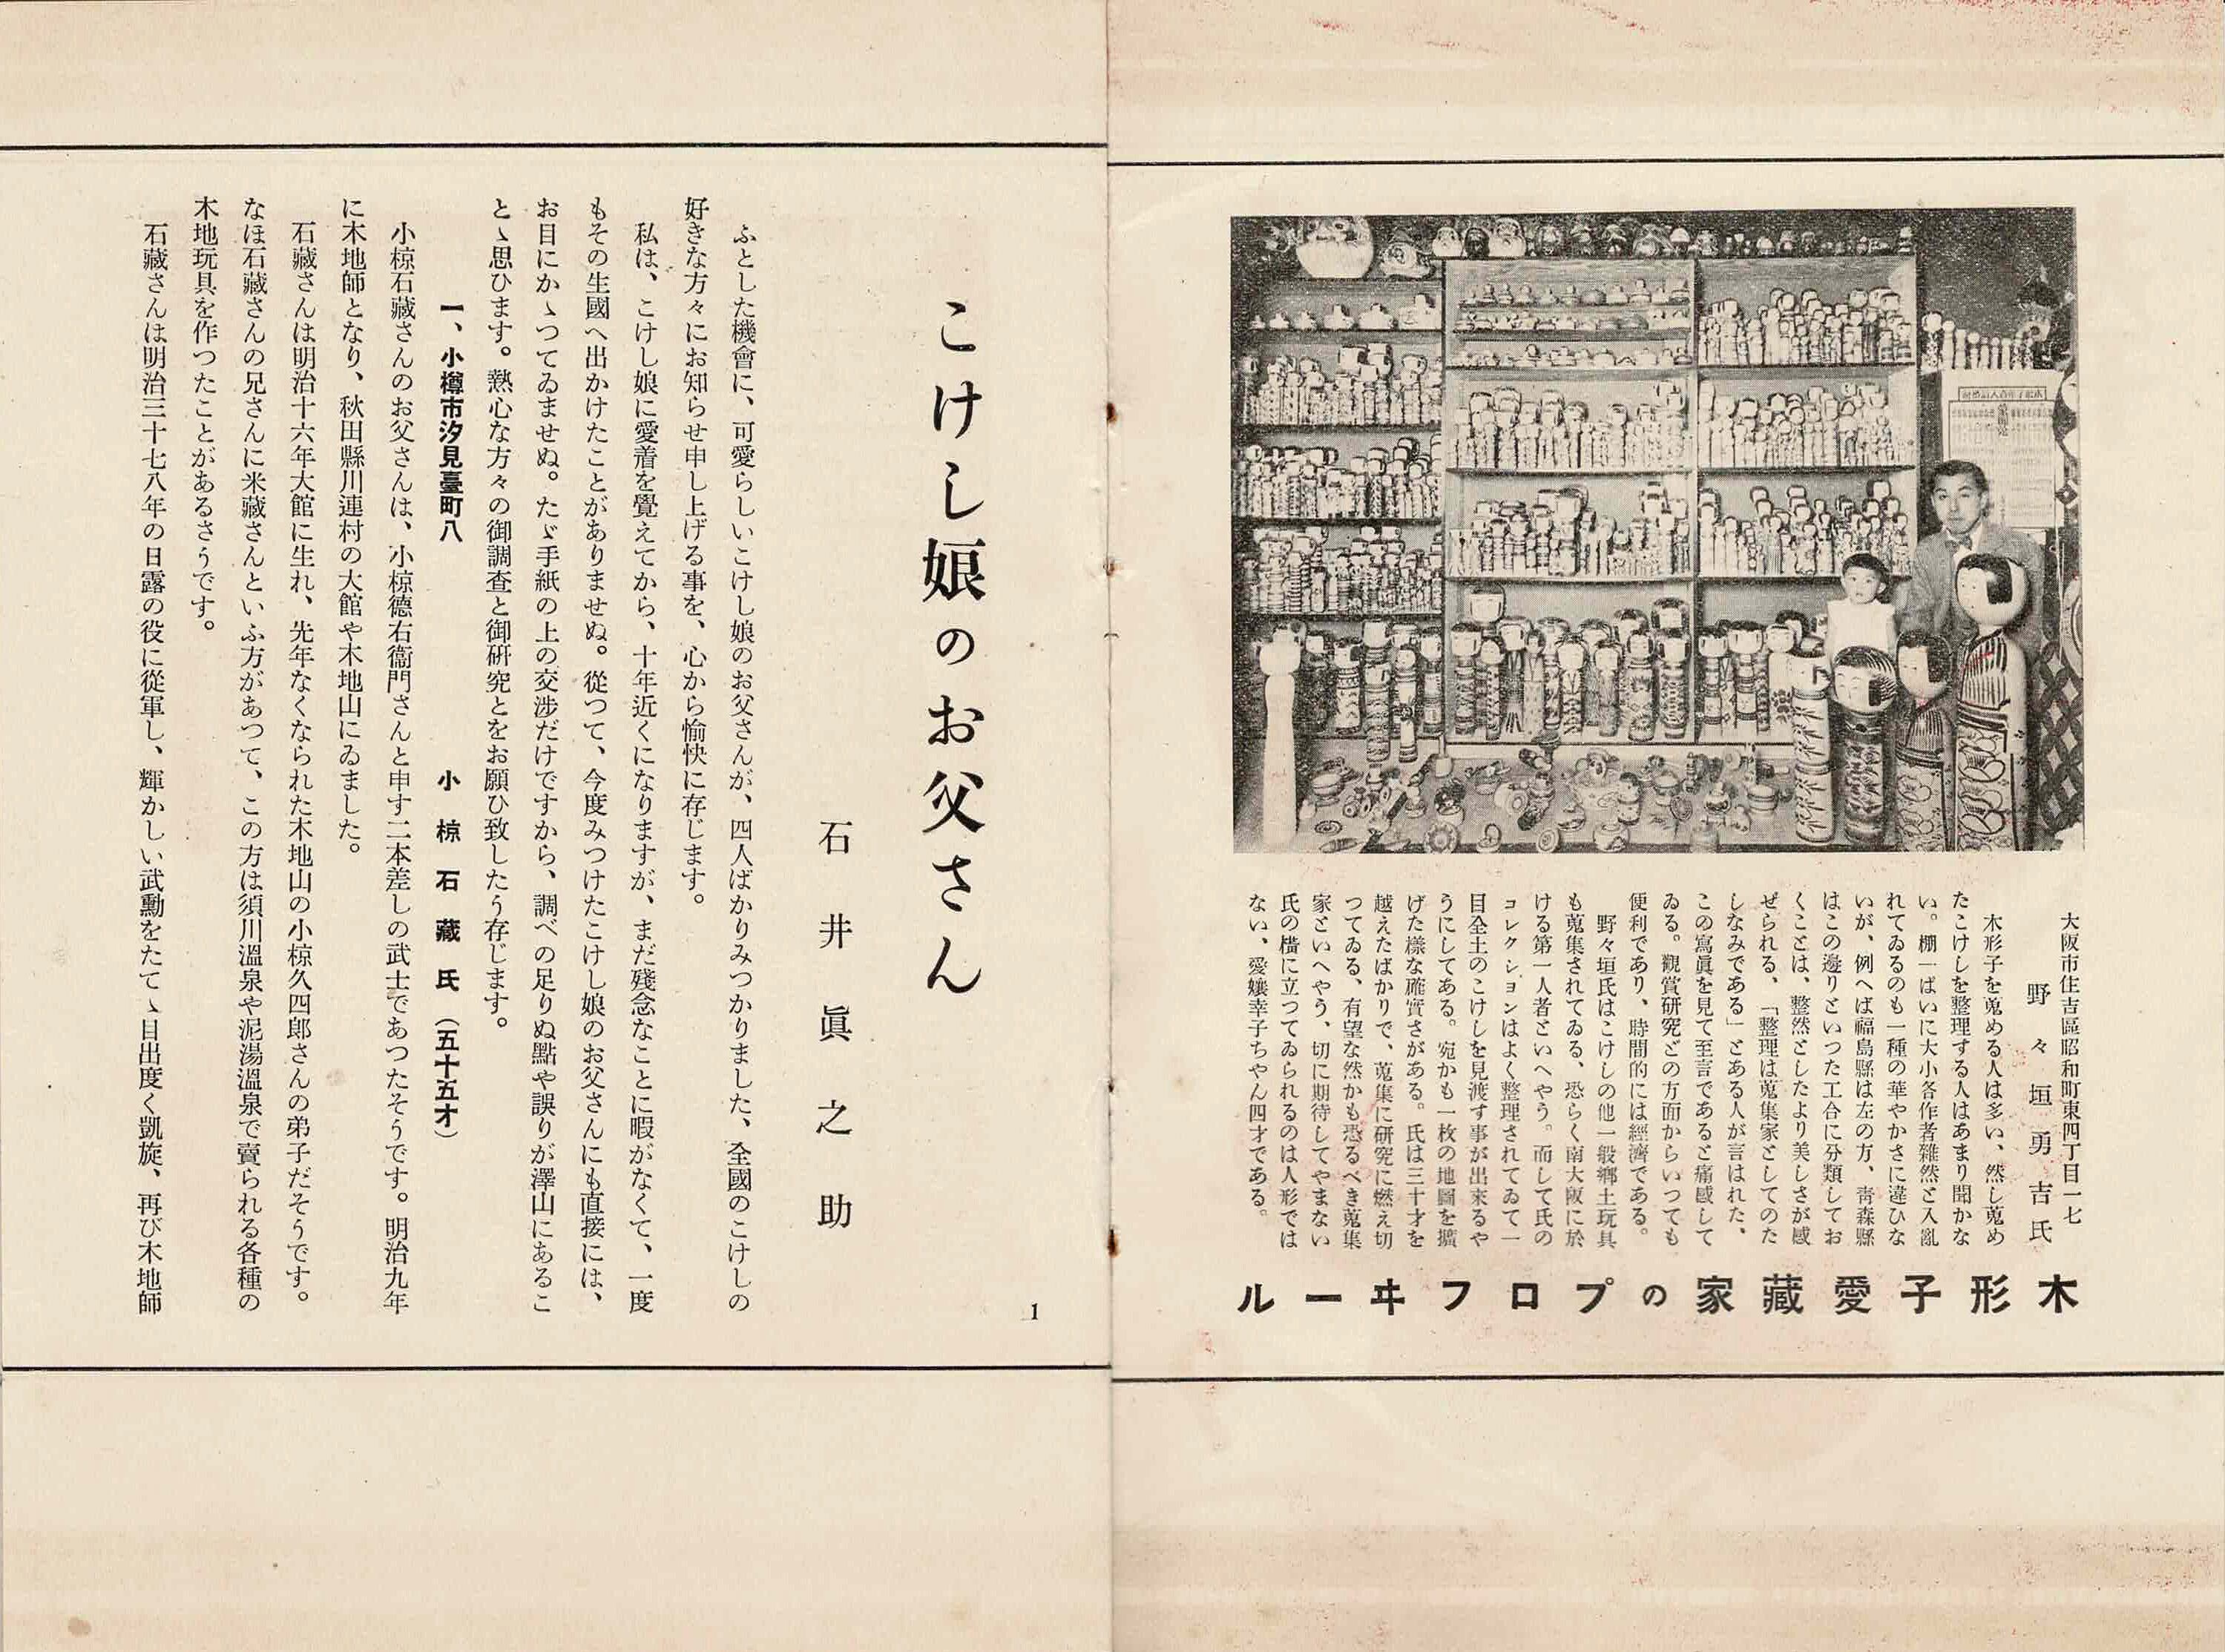 木形子愛藏家のプロフヰール
大阪市住吉區昭和町東四丁目一七
野々垣勇吉氏
木形子を蒐める人は多い、然し蒐め
たこけしを整理する人はあまり聞かな
い。棚一ぱいに大小各作者雜然と入亂
れてゐるのも一種の華やかさに違ひな
いが、例へば福島縣は左の方、靑森縣
はこの邊りといつた工合に分類してお
くことは、整然としたより美しさが感
ぜられる、「整理は蒐集家としてのた
しなみである」とある人が言はれた、
この寫眞を見て至言であると痛感して
ゐる。觀賞研究どの方面からいつても
便利であり、時間的には經濟である。
野々垣氏はこけしの他一般鄕土玩具
も蒐集されてゐる、恐らく南大阪に於
ける第一人者といへやう。而して氏の
コレクションはよく整理されてゐて一
目全土のこけしを見渡す事が出來るや
うにしてある。宛かも一枚の地圖を擴
げた樣な確實さがある。氏は三十才を
越えたばかりで、蒐集に研究に燃え切
つてゐる、有望な然かも恐るべき蒐集
家といへやう、切に期待してやまない
氏の橫に立つてゐられるのは人形では
ない、愛孃幸子ちやん四才である。
こけし娘のお父さん
石井眞之助
ふとした機會に、可愛らしいこけし娘のお父さんが、四人ばかりみつかりました、全國のこけしの
好きな方々にお知らせ申し上げる事を、心から愉快に存じます。
私は、こけし娘に愛着を覺えてから、十年近くになりますが、まだ殘念なことに暇がなくて、一度
もその生國へ出かけたことがありませぬ。從つて、今度みつけたこけし娘のお父さんにも直接には、
お目にかゝつてゐませぬ。たゞ手紙の上の交渉だけですから、調べの足りぬ點や誤りが澤山にあるこ
とゝ思ひます。熱心な方々の御調査と御硏究とをお願ひ致したう存じます。
一、小樽市汐見臺町八　小椋石藏氏（五十五才）
小椋石藏さんのお父さんは、小椋德右衞門さんと申す二本差しの武士であつたそうです。明治九年
に木地師となり、秋田縣川連村の大館や木地山にゐました。
石藏さんは明治十六年大館に生れ、先年なくなられた木地山の小椋久四郎さんの弟子だそうです。
なほ石藏さんの兄さんに米藏さんといふ方があつて、この方は須川溫泉や泥湯溫泉で賣られる各種の
木地玩具を作つたことがあるさうです。
石藏さんは明治三十七八年の日露の役に從軍し、輝かしい武勳をたてゝ目出度く凱旋、再び木地師
1